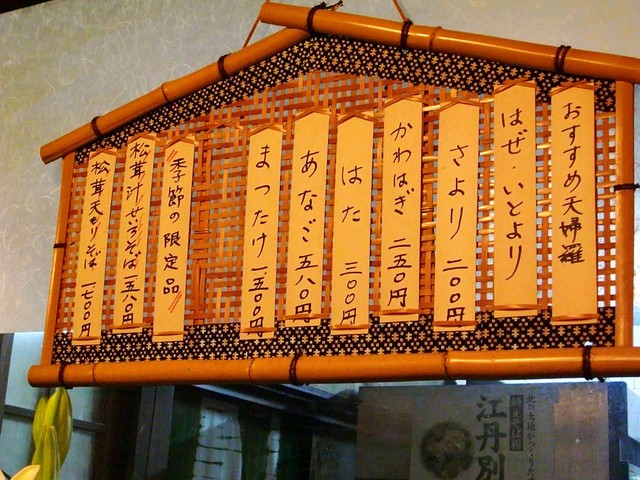 おすすめ天婦羅
はぜ・いとより
さより 二〇〇円
かわはぎ 二五〇円
はた 三〇〇円
あなご 五八〇円
まつたけ 一五〇〇円
季節の限定品
松茸汁せいろそば 一五八〇円
松茸天もりそば 一七〇〇円
江丹別